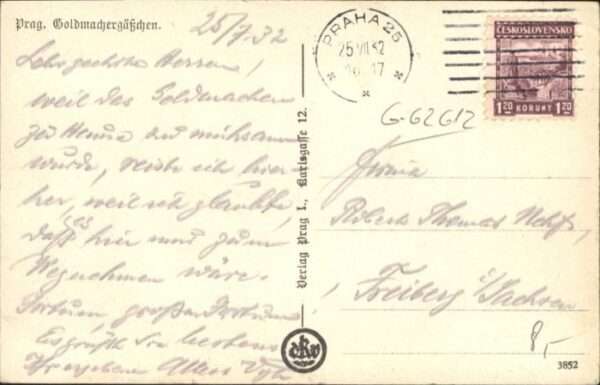 Prag. Goldmachergäßchen.
25/7 32
Sehr geehrte Herren!
weil das Goldmachen
zu Hause zu mühsam
wurde, reiste ich hier-
her, weil ich glaubte,
daß es hier nur zum
Wegnehmen wäre.
Irrtum, großer Irrtum!
Es grüßt Sie bestens
Ihr
Verlag Prag I., Karlsgasse 12.
PRAHA 25
25 VII 32
17
ČESKOSLOVENSKO
1.20 KORUNY 1.20
G-62612
Firma
Robert Thomas Nchf.,
Freiberg i/Sachsen
8,-
3852